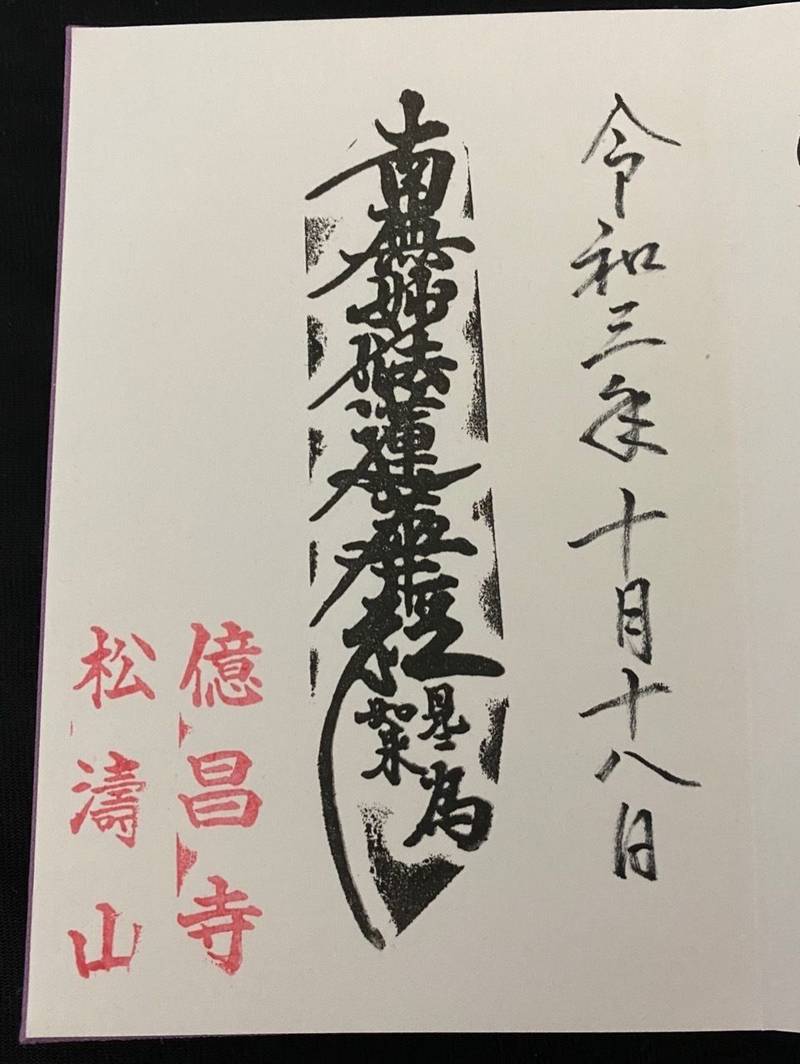 令和三年十月十八日
南無妙法蓮華經
是為
億昌寺
松濤山